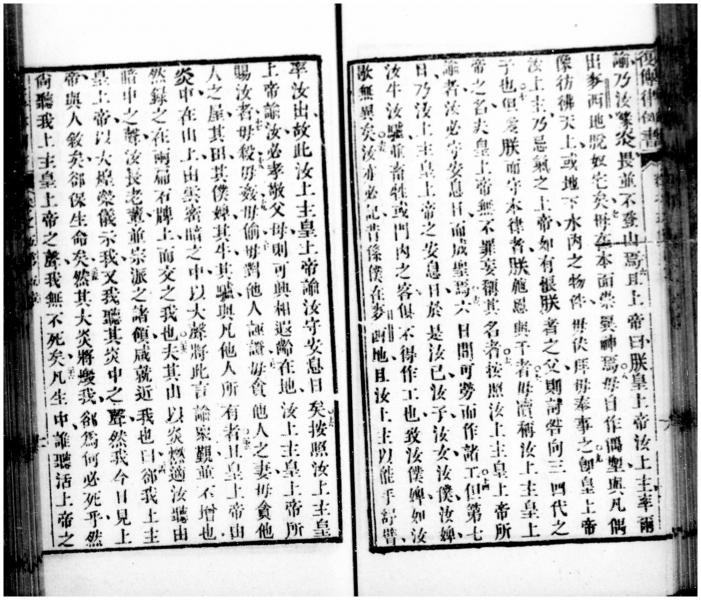 復傳律例書
諭乃汝等炎畏並不登山焉且上帝曰朕皇上帝汝上主率爾
出麥西地脫奴宅矣毋在本面崇異神焉毋自作偶塑與凡偶
像彷彿天上或地下水內之物件毋伏拜毋奉事之卽皇上帝
汝上主乃忌氣之上帝如有恨朕者之父則討咎向三四代之
子也但愛朕而守本律者朕施恩與千者毋瀆稱汝上主皇上
帝之名夫皇上帝無不罪妄稱其名者按照汝上主皇上帝所
諭者汝必守安息日而成聖焉六日間可勞而作諸工但第七
日乃汝上主皇上帝之安息日於是汝已汝子汝女汝僕汝婢
汝牛汝驢並畜牲或門內之客俱不得作工也致汝僕婢如汝
歇無異矣汝亦必記昔係僕在麥西地且汝上主以能手舒臂
率汝出故此汝上主皇上帝諭汝守安息日矣按照汝上主皇
上帝諭汝必孝敬父母則可興相遐齡在地汝上主皇上帝所
賜汝者毋殺毋姦毋偷毋對他人誣證毋貪他人之妻毋貪他
人之屋其田其僕婢其牛其驢與凡他人所有者且皇上帝由
炎中在山上由雲密暗之中以大聲將此言諭眾觀並不增也
然錄之在兩扁石牌上而交之我也夫其山以炎燃適汝聽由
暗中之聲汝長老輩並宗派之諸領咸就近我也曰卻我上主
皇上帝以大煌榮儀示我又我聽其炎中之聲然我今日見上
帝與人敘矣卻保生命矣然其大炎將燬我卻為何必死乎然
倘聽我上主皇上帝之聲我無不死矣凡生中誰聽活上帝之